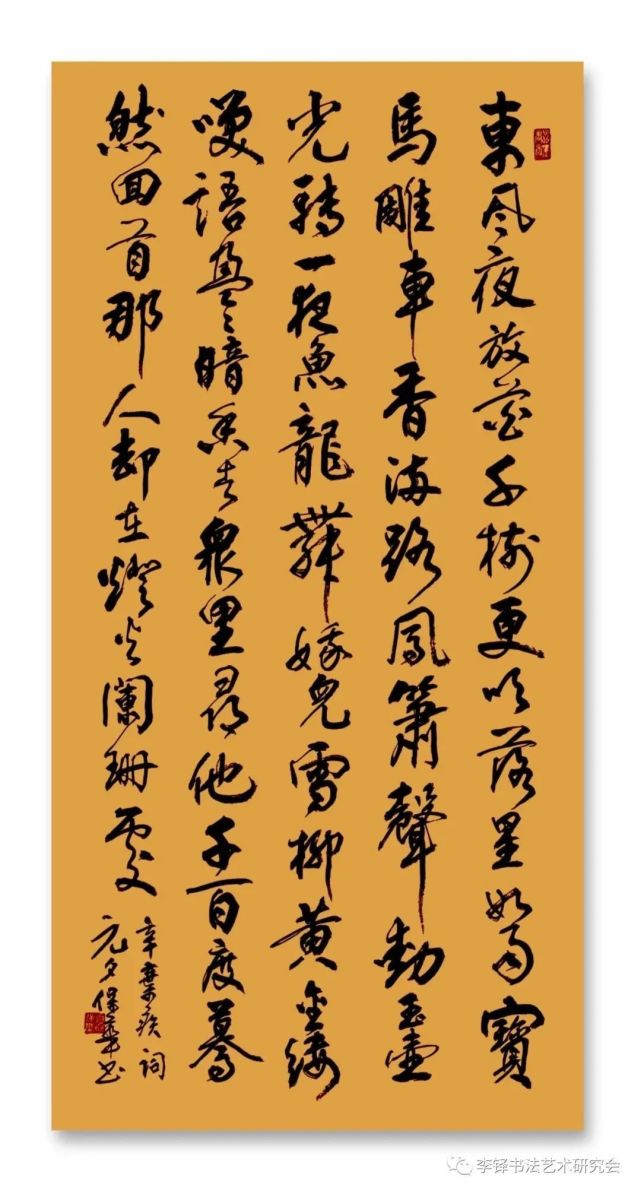 東風夜放花千樹更吹落星如雨寶
馬雕車香滿路鳳簫聲動玉壺
光轉一夜魚龍舞娥兒雪柳黄金縷
咲語盈々暗香去眾里尋他千百度驀
然回首那人却在燈火闌珊處
辛棄疾詞
元夕保華书
李铎书法艺术研究会